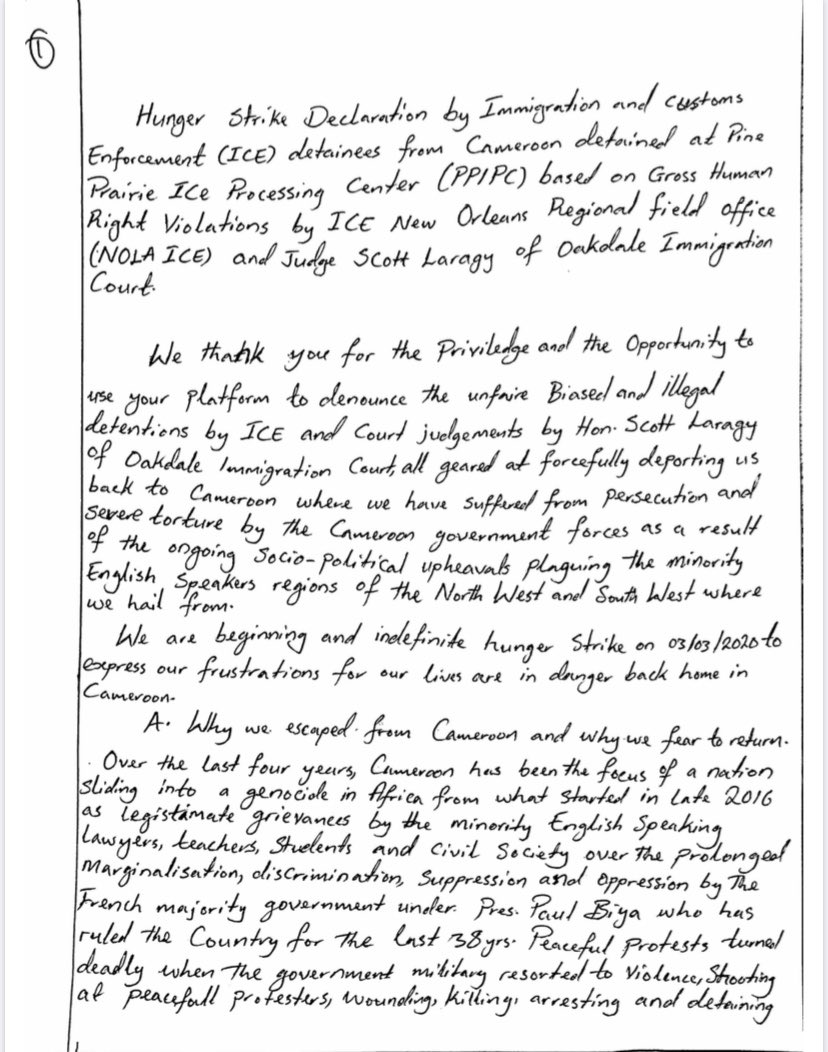 1
Hunger Strike Declaration by Immigration and customs
Enforcement (ICE) detainees from Cameroon detained at Pine
Prairie ICe Processing Center (PPIPC) based on Gross Human
Right Violations by ICE New Orleans Regional field office
(NOLA ICE) and Judge Scott Laragy of Oakdale Immigration
Court.
We thank you for the Priviledge and the Opportunity to
use your Platform to denounce the unfaire Biased and illegal
detentions by ICE and Court judgements by Hon. Scott Laragy
of Oakdale Immigration Court, all geared at forcefully deporting us
back to Cameroon where we have suffered from persecution and
severe torture by the Cameroon government forces as a result
of the ongoing Socio-political upheavals plaguing the minority
English Speakers regions of the North West and South West where
we hail from.
We are beginning and indefinite hunger Strike on 03/03/2020 to
express our frustrations for our lives are in danger back home in
Cameroon.
A. Why we escaped from Cameroon and why we fear to return.
Over the last four years, Cameroon has been the focus of a nation
sliding into a genocide in Africa from what started in late 2016
as legistamate grievances by the minority English Speaking
Lawyers, teachers, Students and Civil Society over the prolonged
Marginalisation, discrimination, Suppression and Oppression by The
French majority government under Pres. Paul Biya who has
ruled the Country for the last 38yrs. Peaceful Protests turned
deadly when the government military resorted to Violence, Shooting
at peacefull protesters, wounding, killing, arresting and detaining